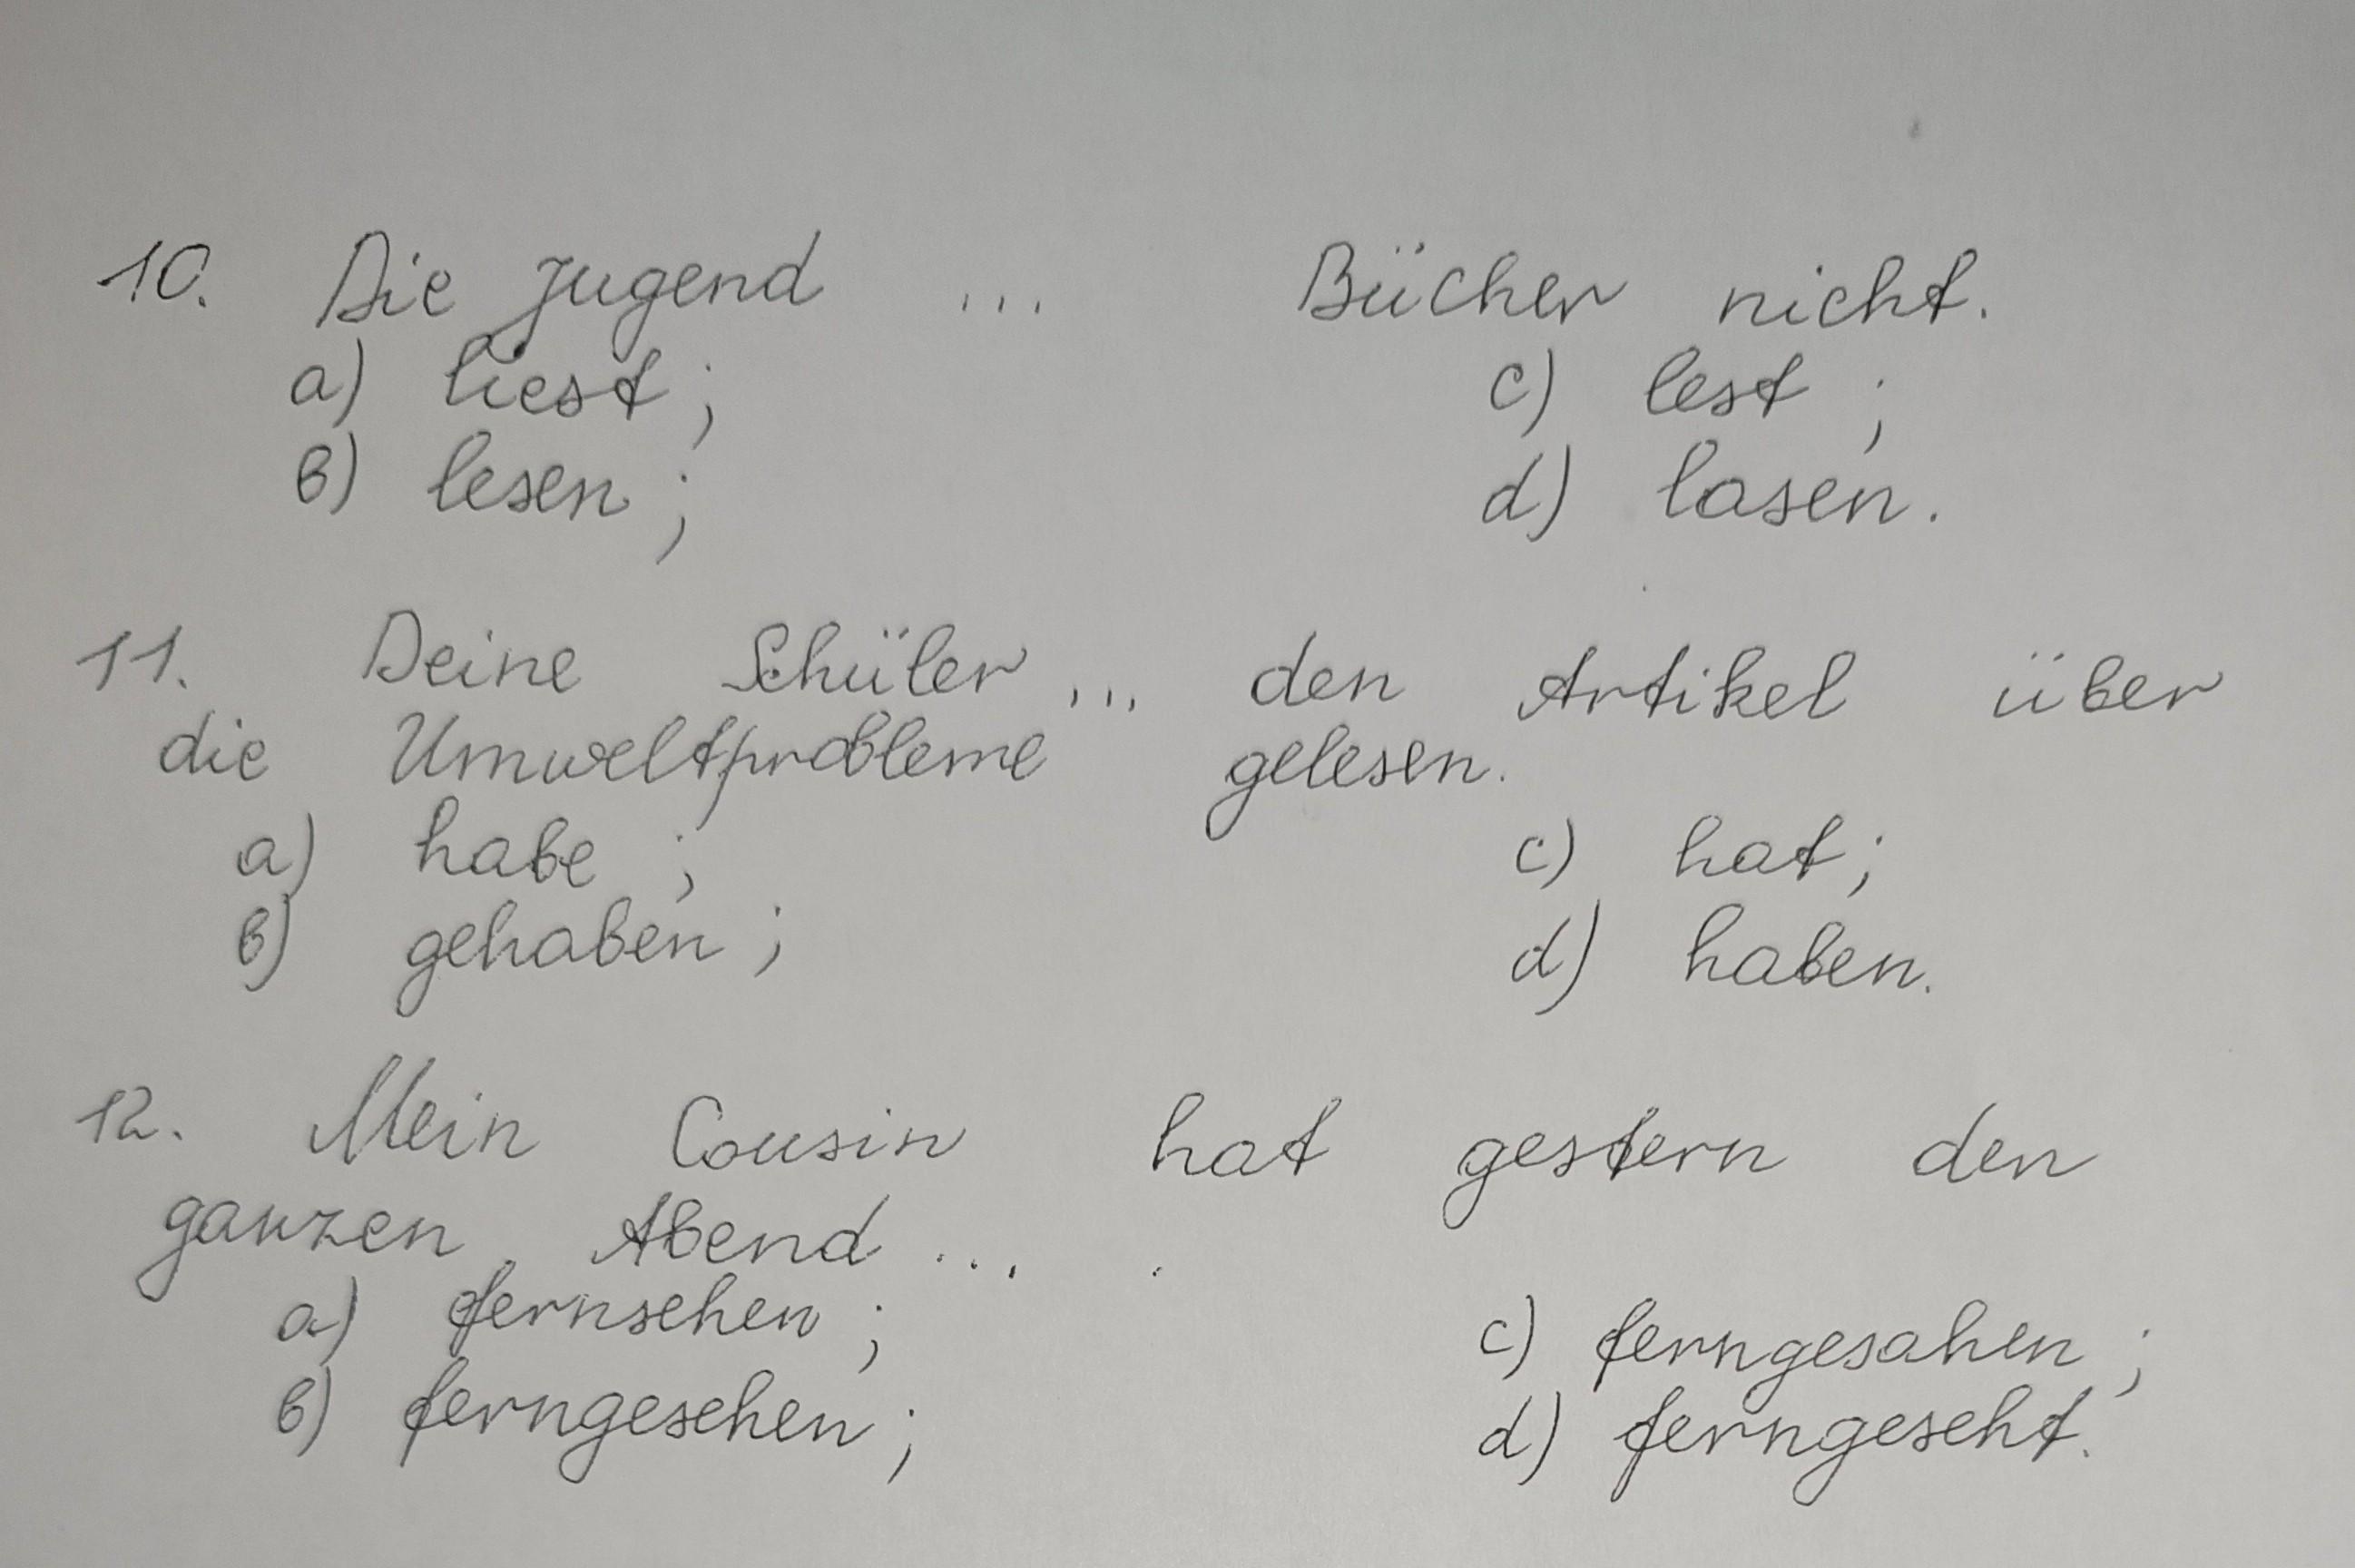 10. Die Jugend ... Bücher nicht.
a) liest; c) lest;
b) lesen; d) lasen.
11. Deine Schüler ... den Artikel über
die Umweltprobleme gelesen.
a) habe; c) hat;
b) gehaben; d) haben.
12. Mein Cousin hat gestern den
ganzen Abend ... .
a) fernsehen; c) ferngesahen;
b) ferngesehen; d) ferngeseht.